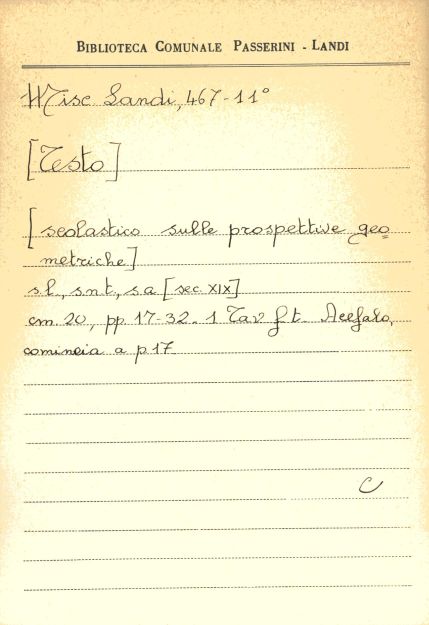 BIBLIOTECA COMUNALE PASSERINI - LANDI
Misc Landi, 467-11°
[Testo]
[scolastico sulle prospettive geo
metriche]
s.l., s.n.t., s.a [sec. XIX]
cm. 20, pp. 17-32. 1 Tav f. t. Acefalo,
comincia a p 17
C